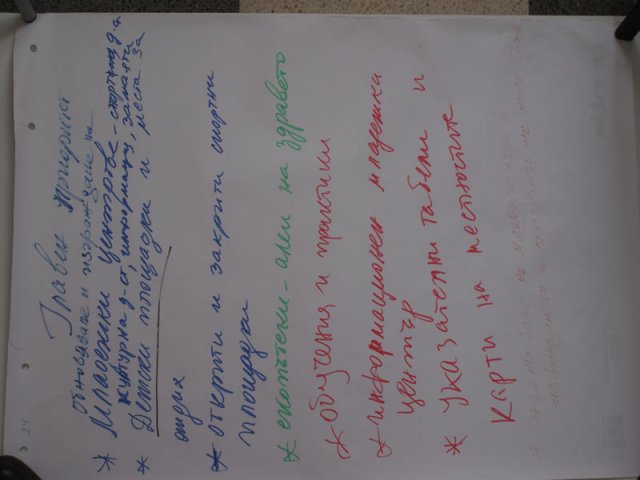 Главен приоритет
обновяване и изграждане на
* Младежки центрове - спортна д-т
културна д-ст, информация, занаяти
* Детски площадки и места за
отдих
* открити и закрити спортни
площадки
* екопътеки - алеи на здравето
* обучения и практики
* информационен младежки
център
* указателни табели и
карти на местностите